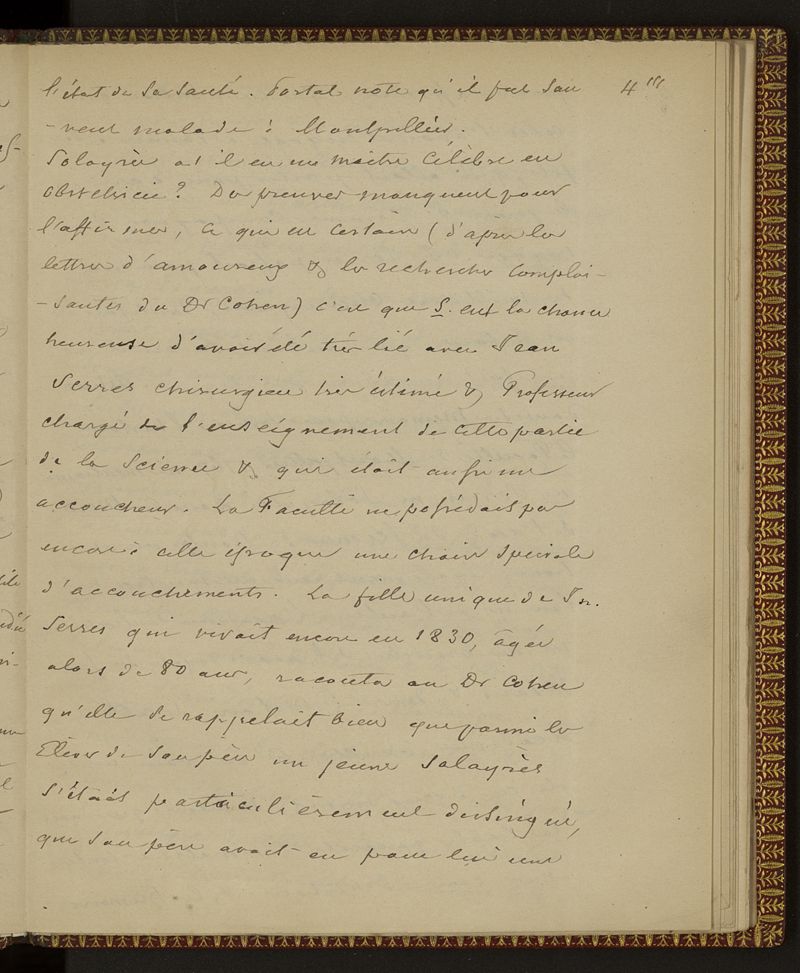 l'état de sa santé. Portal note qu'il fut sou 4
-vent malade à Montpellier.
Solayrès a t il eu un maître célèbre en
obstétricie? Des preuves manquent pour
l'affirmer, ce qui est certain (d'après les
lettres d'amoureux & les recherches complai-
-santes du Dr Cohen) c'est que S. eut la chance
heureuse d'avoir été très lié avec Jean
Serres chirurgien très estimé & Professeur
chargé de l'enseignement de cette partie
de la Science & qui était aussi un
accoucheur. La Faculté ne possédait pas
encore à cette époque une chaire speciale
d'accouchements. La fille unique de Jn.
Serres qui vivait encore en 1830, âgée
alors de 80 ans, raconta au Dr Cohen
qu'elle se rappelait bien que parmi les
Elèves de son père un jeune Solayrès
s'était particulièrement distingué,
que son père avait eu pour lui une